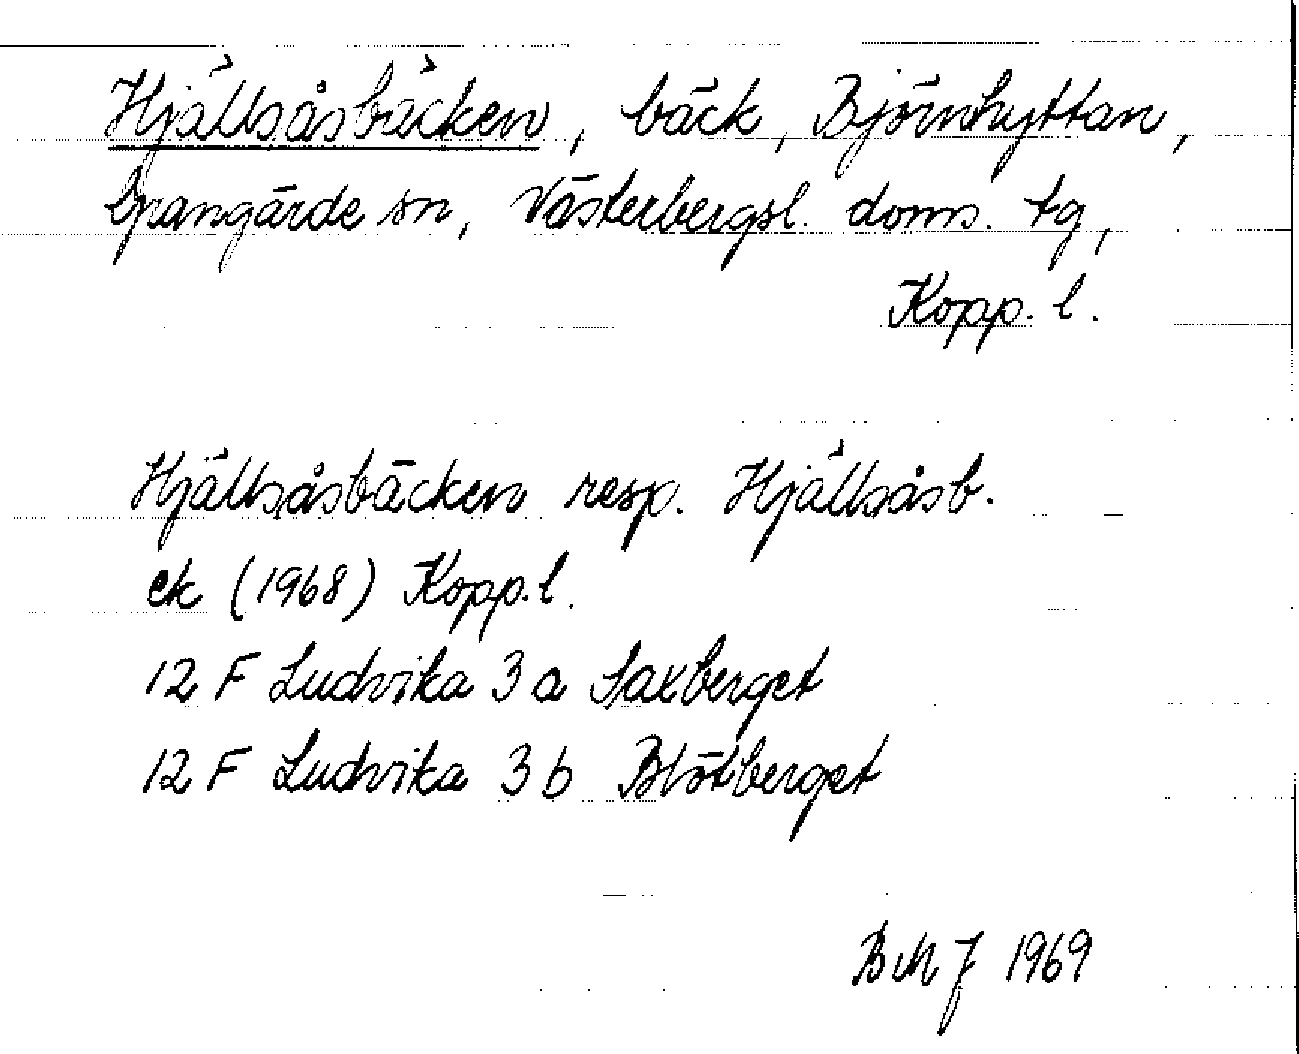 Hjällsåsbäcken, bäck, Björnhyttan,
Grangärde sn, Västerbergsl. doms. tg,
Kopp. l.
Hjällsåsbäcken resp. Hjällsåsb.
ek (1968) Kopp. l.
12 F Ludvika 3 a Saxberget
12 F Ludvika 3 b Blötberget
BMJ 1969